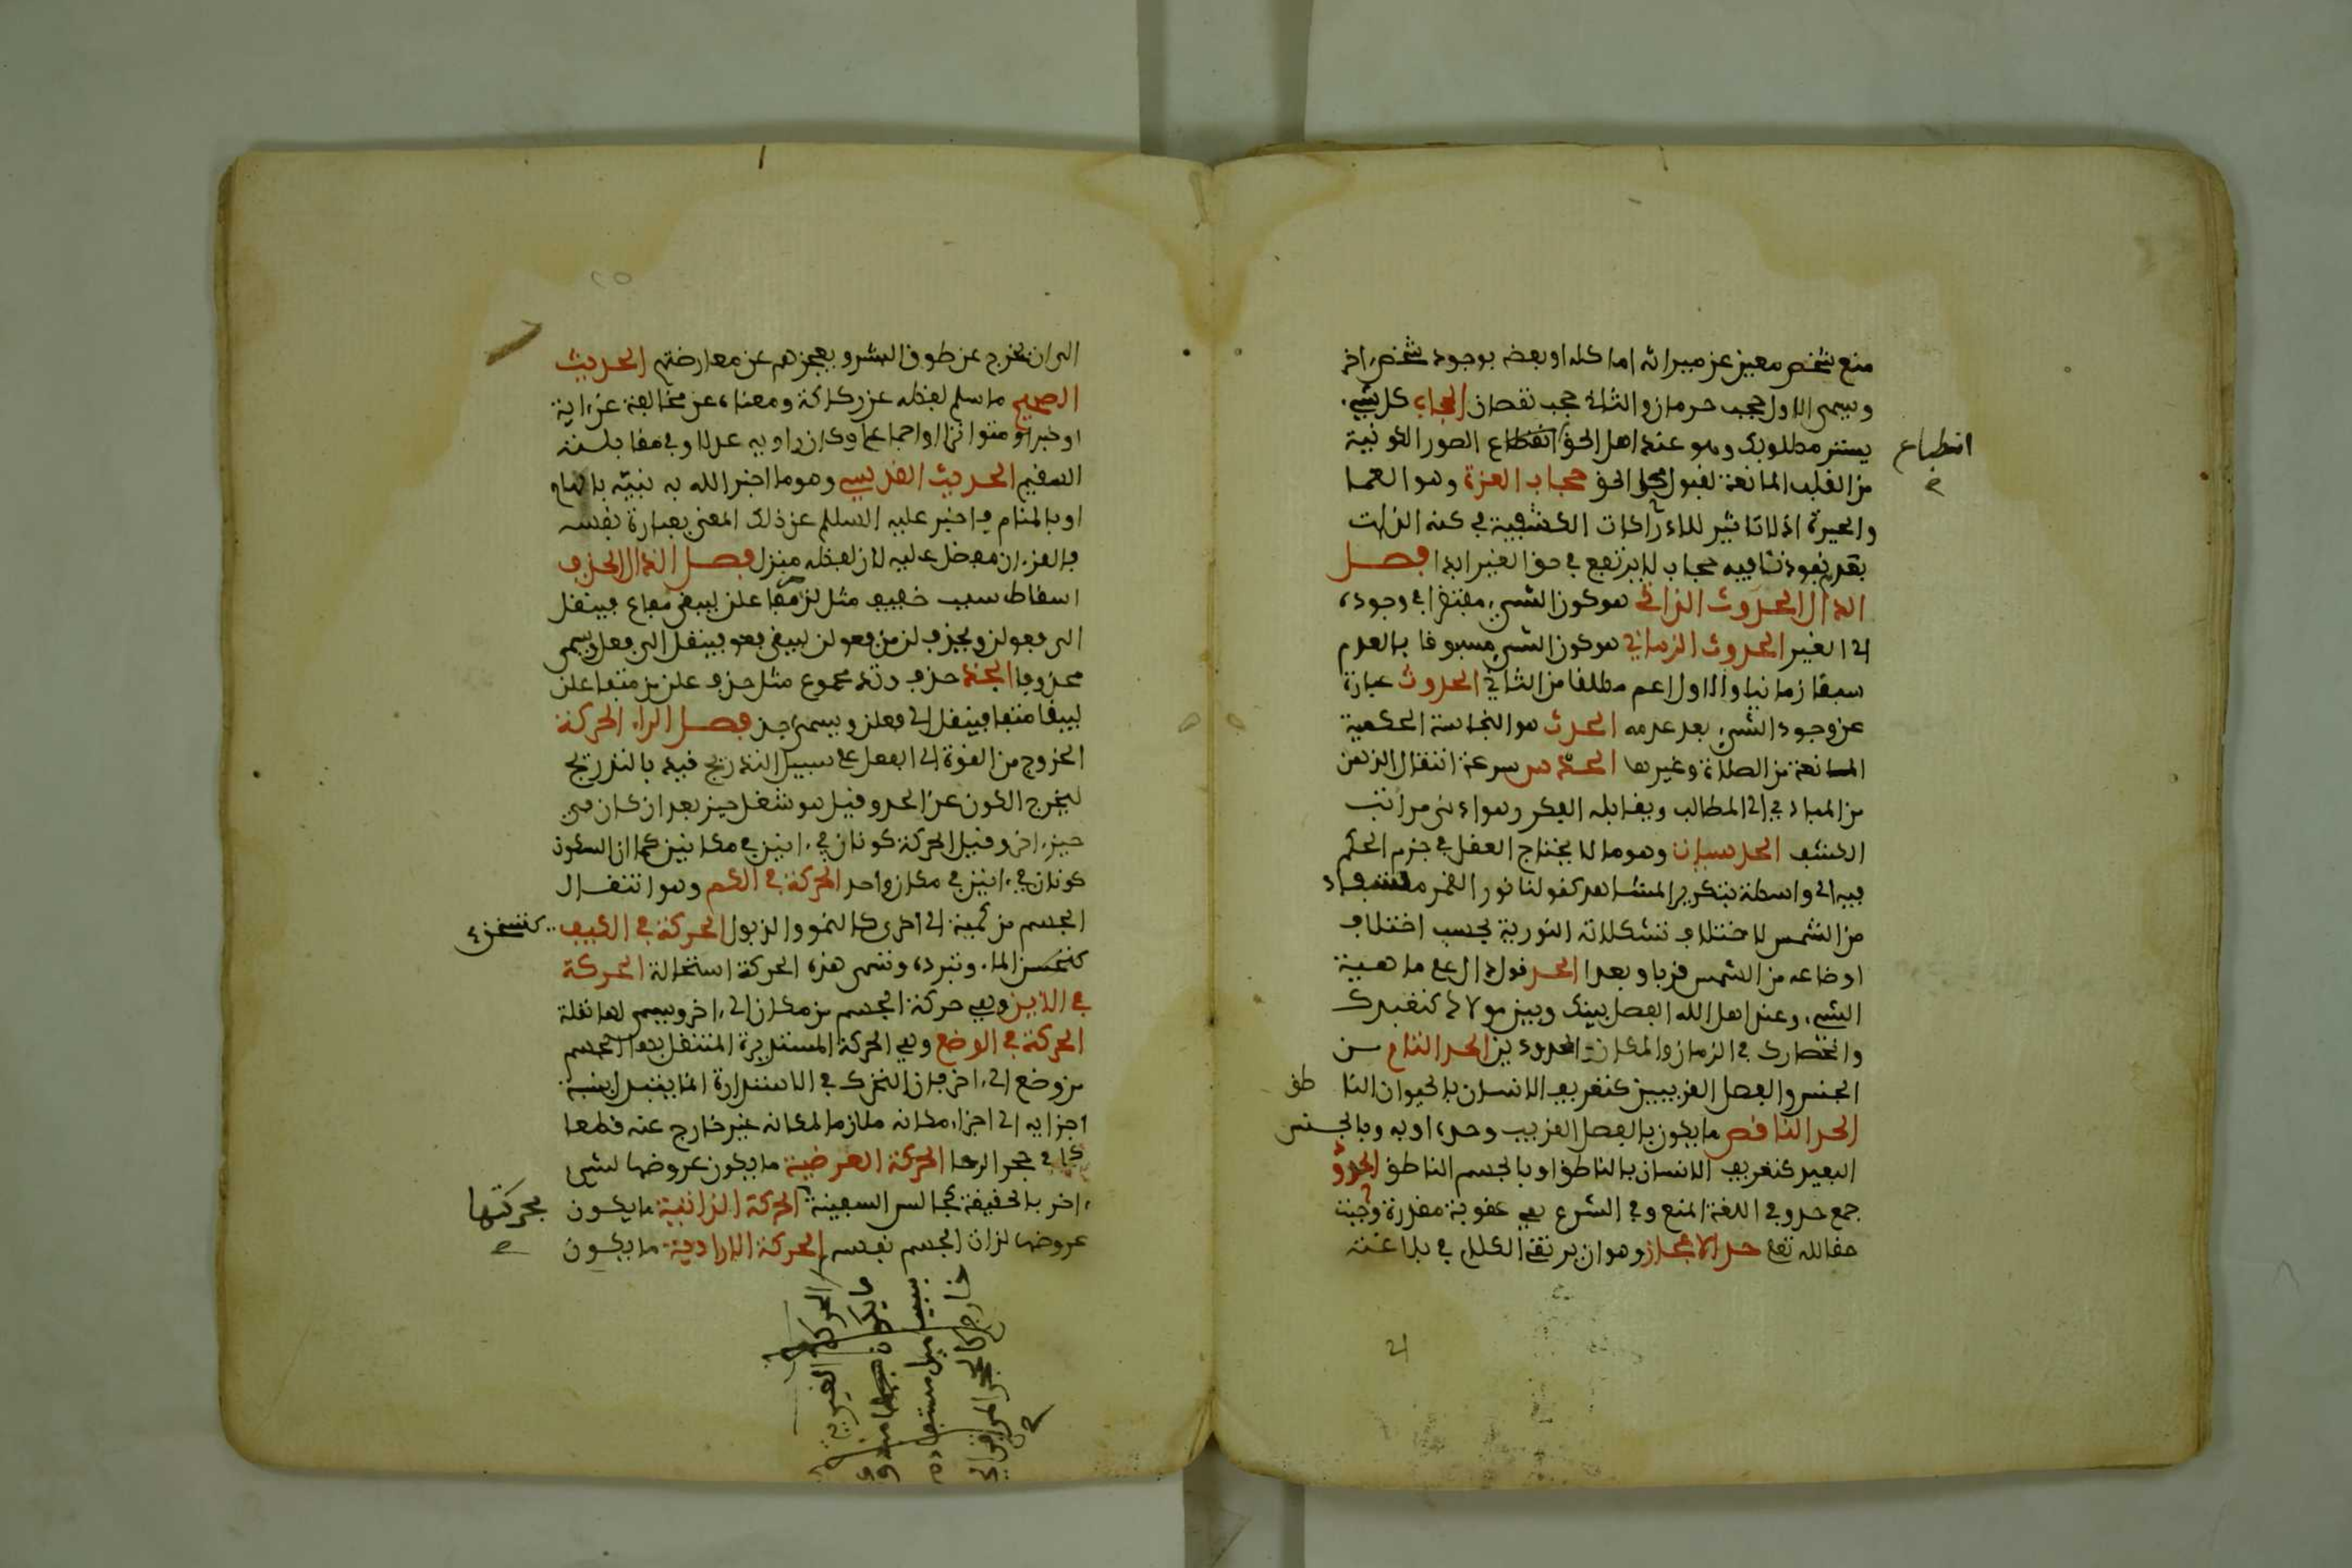 منع شخص معين عن ميراثه اما كله او بعضه بوجود شخص اخر
ويسمى الاول حجب حرمان والثانى حجب نقصان الحجاب كل شىء
يستر مطلوبك وهو عند اهل الحق انقطاع الصور الكونية
انطباع
من القلب المانعة لقبول تجلى الحق حجاب العزة وهو العما
والحيرة اذ لا تاثير للادراكات الكشفية في كنه الذات
بعدم نفوذها فيه حجاب لا يرتفع في حق الغير ابدا فصل
الدال الحدوث الذاتى هو كون الشىء مفتقرا في وجوده
الى الغير الحدوث الزمانى هو كون الشىء مسبوقا بالعدم
سبقا زمانيا والاول اعم مطلقا من الثانى الحدوث عبارة
عن وجود الشىء بعد عدمه الحدث هو النجاسة الحكمية
المانعة من الصلاة وغيرها الحدس سرعة انتقال الذهن
من المبادي الى المطالب ويقابله الفكر وهو ادنى مراتب
الكشف الحدسيات وهو ما لا يحتاج العقل في جزم الحكم
فيه الى واسطة بتكرير المشاهد كقولنا نور القمر مستفاد
من الشمس لاختلاف تشكلاته النورية بحسب اختلاف
اوضاعه من الشمس قربا وبعدا الحد قول دال على ماهية
الشىء وعند اهل الله الفصل بينك وبين مولاك كتعبدك
وانحصارك في الزمان والمكان المحدودين الحد التام من
الجنس والفصل القريبين كتعريف الانسان بالحيوان الناطق
الحد الناقص ما يكون بالفصل القريب وحده او به وبالجنس
البعيد كتعريف الانسان بالناطق او بالجسم الناطق الحدود
جمع حد وفي اللغة المنع وفي الشرع هي عقوبة مقدرة وجبت
حقا لله تعالى حد الاعجاز وهو ان يرتقى الكلام في بلاغته
الى ان يخرج عن طوق البشر ويعجزهم عن معارضته الحديث
الصحيح ما سلم لفظه عن ركاكة ومعناه عن مخالفة عن اية
او خبر متواتر او اجماع وكان راويه عدلا وفي مقابلته
السقيم الحديث القدسى وهو ما اخبر الله به نبيه بالهام
او بالمنام فاخبر عليه السلام عن ذلك المعنى بعبارة نفسه
فالقرءان مفضل عليه لان لفظه منزل فصل الذال الحذف
اسقاط سبب خفيف مثل لن مفاعلن ليبقى مفاع فينقل
الى فعولن ويحذف لن من فعولن ليبقى فعو فينقل الى فعل ويسمى
محذوفا الحذذ حذف وتد مجموع مثل حذف علن من متفاعلن
ليبقا متفا فينقل الى فعلن ويسمى احذ فصل الراء الحركة
الخروج من القوة الى الفعل على سبيل التدريج قيد بالتدريج
ليخرج الكون عن الحد وقيل هو شغل حيز بعد ان كان في
حيز اخر وقيل الحركة كونان في ءانين في مكانين كما ان السكون
كونان في ءانين في مكان واحد الحركة في الكم وهو انتقال
الجسم من كمية الى اخرى كالنمو والذبول الحركة في الكيف
كتسخن
كتخسن الماء وتبرده وتسمى هذه الحركة استحالة الحركة
في الاين وهي حركة الجسم من مكان الى ءاخر ويسمى لها نقلة
الحركة في الوضع وهي الحركة المستديرة المنتقل بها الجسم
من وضع الى ءاخر فان المتحرك في الاستدارة انما يتبدل نسبة
اجزايه الى اجزاء مكانه ملازما لمكانه غير خارج عنه قطعا
كما في حجر الرحا الحركة العرضية ما يكون عروضها لشىء
ءاخر بالحقيقة كجالس السفينة الحركة الذاتية ما يكون
بحركتها
عروضها لذات الجسم نفسه الحركة الارادية ما يكون
الحركة القسرية
ما يكون
بسبب ميل مستفاد من
خارج كالحجر المرمي الى